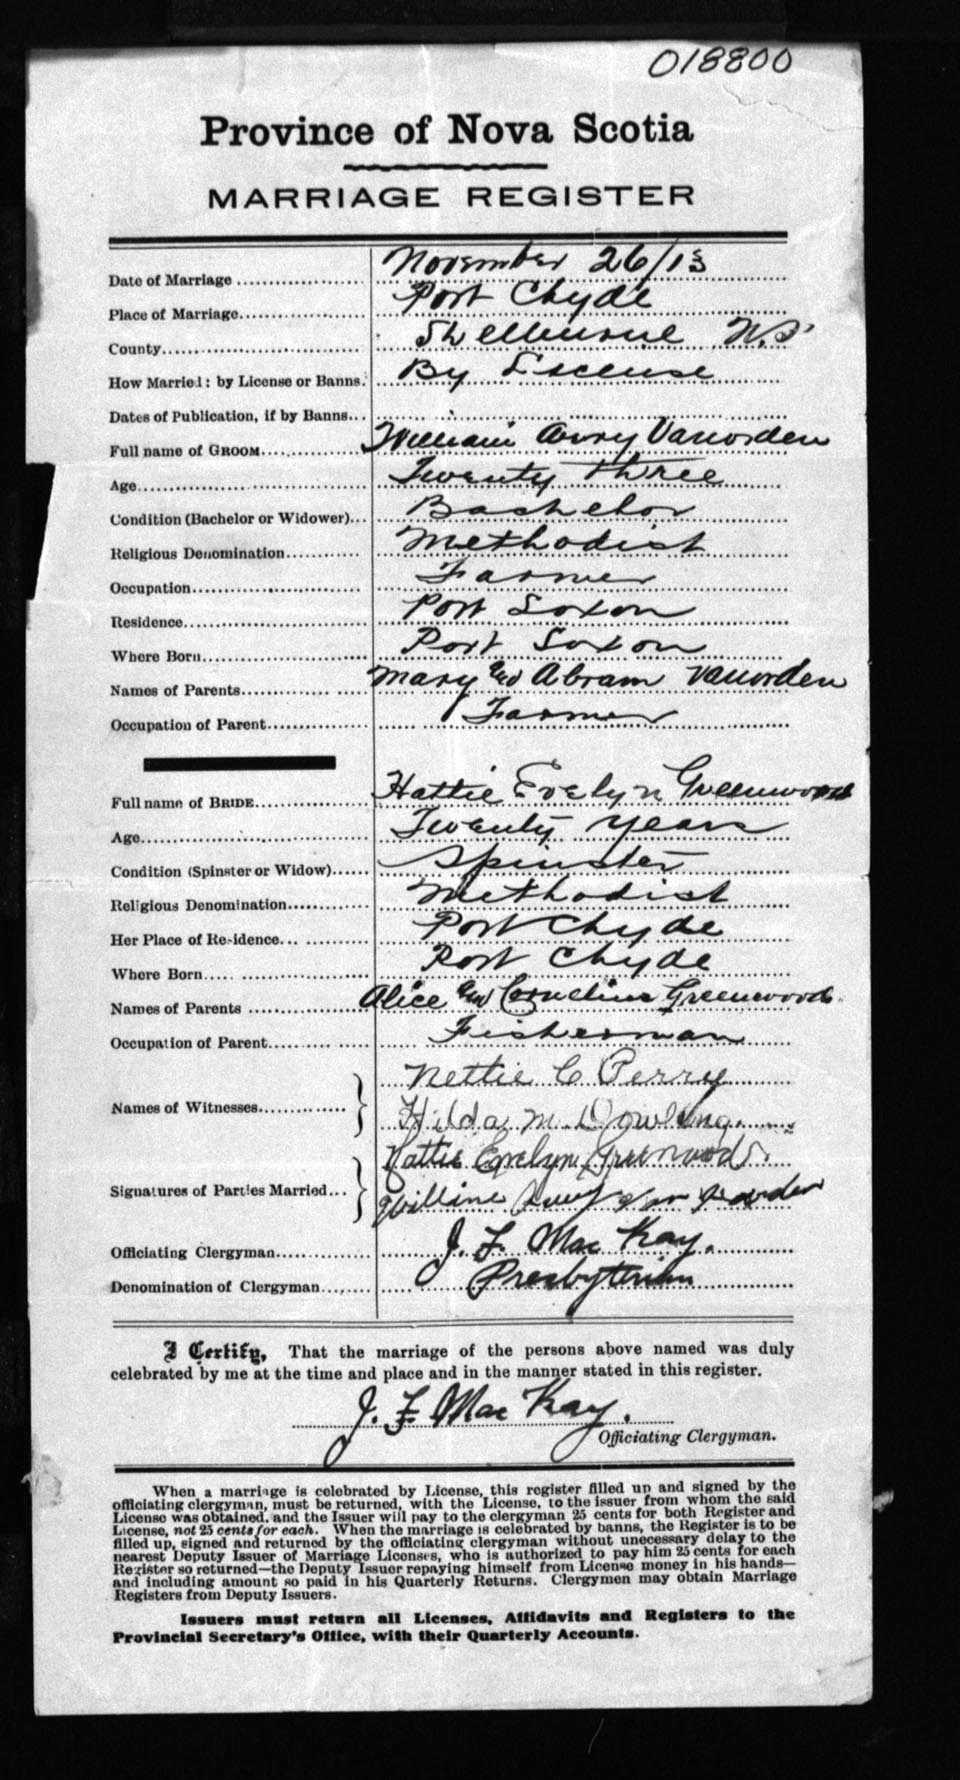 018800
Province of Nova Scotia
MARRIAGE REGISTER
Date of Marriage November 26/13
Place of Marriage Port Clyde
County Shelburne N.S
How Married: by License or Banns. By License
Dates of Publication, if by Banns
Full name of GROOM William Avry Vanorden
Age Twenty three
Condition (Bachelor or Widower) Bachelor
Religious Denomination Methodist
Occupation Farmer
Residence Port Soxon
Where Born Port Soxon
Names of Parents Mary and Abram Vanorden
Occupation of Parent Farmer
Full name of BRIDE Hattie Evelyn Greenwood
Age Twenty years
Condition (Spinster or Widow) Spinster
Religious Denomination Methodist
Her Place of Residence Port Clyde
Where Born Port Clyde
Names of Parents Alice and Cornelius Greenwood
Occupation of Parent Fisherman
Nettie C Perry
Names of Witnesses
Hilda M. Dowling
Hattie Evelyn Greenwood
Signatures of Parties Married
Officiating Clergyman J. F. MacKay.
Denomination of Clergyman Presbyterian
I Certify, That the marriage of the persons above named was duly
celebrated by me at the time and place and in the manner stated in this register.
J. F. MacKay.
Officiating Clergyman.
When a marriage is celebrated by License, this register filled up and signed by the
officiating clergyman, must be returned, with the License, to the issuer from whom the said
License was obtained, and the Issuer will pay to the clergyman 25 cents for both Register and
License, not 25 cents for each. When the marriage is celebrated by banns, the Register is to be
filled up, signed and returned by the officiating clergyman without unecessary delay to the
nearest Deputy Issuer of Marriage Licenses, who is authorized to pay him 25 cents for each
Register so returned—the Deputy Issuer repaying himself from License money in his hands—
and including amount so paid in his Quarterly Returns. Clergymen may obtain Marriage
Registers from Deputy Issuers.
Issuers must return all Licenses, Affidavits and Registers to the
Provincial Secretary's Office, with their Quarterly Accounts.